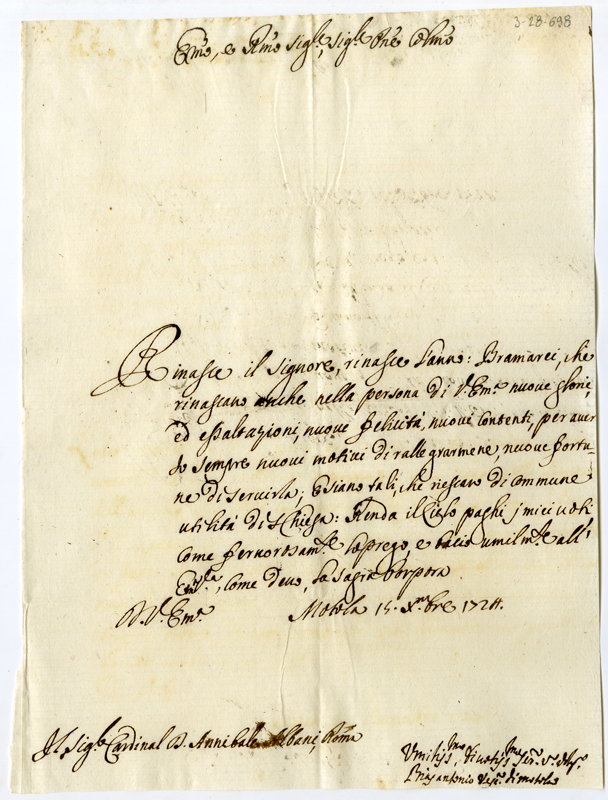 3-28-698
Em̃o, e Rm̃o Sig.re, Sig.re Oñe Colm̃o
Rinasce il Signore, rinasce l'anno: Bramarei, che
rinascano anche nella persona di V. Em.a nuove glorie,
ed esaltazioni, nuove felicità, nuovi contenti, per aver
io sempre nuovi motivi di rallegrarmene, nuove fortu-
ne di servirla; E siano tali, che riescano di commune
utilità di S. Chiesa: Renda il Cielo paghi j miei voti
come fervorosam.te lo prego, e bacio umilm.te all'
Em.za V.a, come devo, la Sagra Porpora
D. V. Em.a Motola 15. Xm̃bre 1724.
Il Sig.re Cardinal D. Annibale Albani, Roma
Umiliss.mo Divotiss.mo Ser.re
antonio Vesc.o di motola